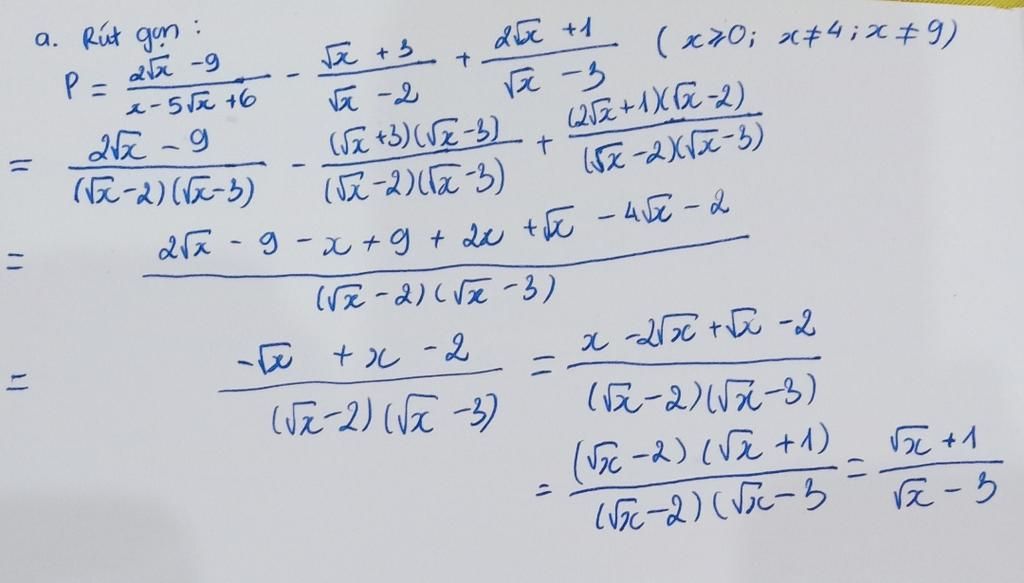 a. Rút gọn :
P = (2√x - 9)/(x - 5√x + 6) - (√x + 3)/(√x - 2) + (2√x + 1)/(√x - 3) ( x ⩾ 0; x ≠ 4 ; x ≠ 9)
= (2√x - 9)/((√x - 2)(√x - 3)) - ((√x + 3)(√x - 3))/((√x - 2)(√x - 3)) + ((2√x + 1)(√x - 2))/((√x - 2)(√x - 3))
= (2√x - 9 - x + 9 + 2x + √x - 4√x - 2)/((√x - 2)(√x - 3))
= (-√x + x - 2)/((√x - 2)(√x - 3)) = (x - 2√x + √x - 2)/((√x - 2)(√x - 3))
= ((√x - 2)(√x + 1))/((√x - 2)(√x - 3) = (√x + 1)/(√x - 3)